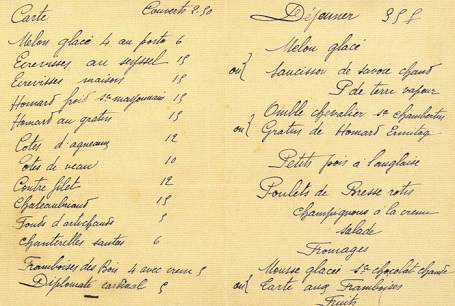 Carte Couverts 2.50
Melon glacé 4 au porto 6
Ecrevisses au seyssel 15
Ecrevisses maisons 15
Homard froid se mayonnais 15
Homard au gratin 15
Cotes d'agneaux 12
Cotes de veau 10
Contre filet 12
Chateaubriand 15
Fonds d'artichauds 5
Chanterelles sautés 6
Framboises des Bois 4 avec crem 5
Diplomate cardinal 5
Déjeuner
Melon glacé
ou} Saucisson de savoie chaud
P de terre vapeur
Omble chevalier se chambertin
ou} Gratins de Homard Ermitag
Petits pois a langlaise
Poulets de Bresse rotis
Champignons a la crem
salade
Fromages
Mousse glacée se chocolat chaude
ou} Tarte aux Framboises
Fruits